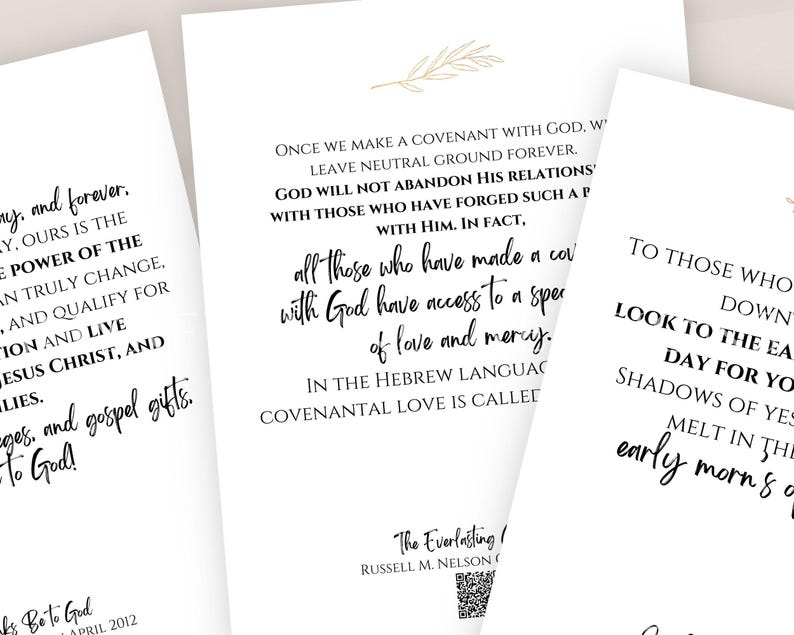 ay, and forever,
Y, OURS IS THE
E POWER OF THE
AN TRULY CHANGE,
, AND QUALIFY FOR
TION AND LIVE
JESUS CHRIST, AND
ILIES.
eges, and gospel gifts,
to God!
ks Be to God
APRIL 2012
ONCE WE MAKE A COVENANT WITH GOD, W
LEAVE NEUTRAL GROUND FOREVER.
GOD WILL NOT ABANDON HIS RELATIONS
WITH THOSE WHO HAVE FORGED SUCH A B
WITH HIM. IN FACT,
all those who have made a cov
with God have access to a spec
of love and mercy.
IN THE HEBREW LANGUAG
COVENANTAL LOVE IS CALLED
The Everlasting
RUSSELL M. NELSON
TO THOSE WHO
DOWNT
LOOK TO THE EA
DAY FOR YO
SHADOWS OF YES
MELT IN THE
early morn's o